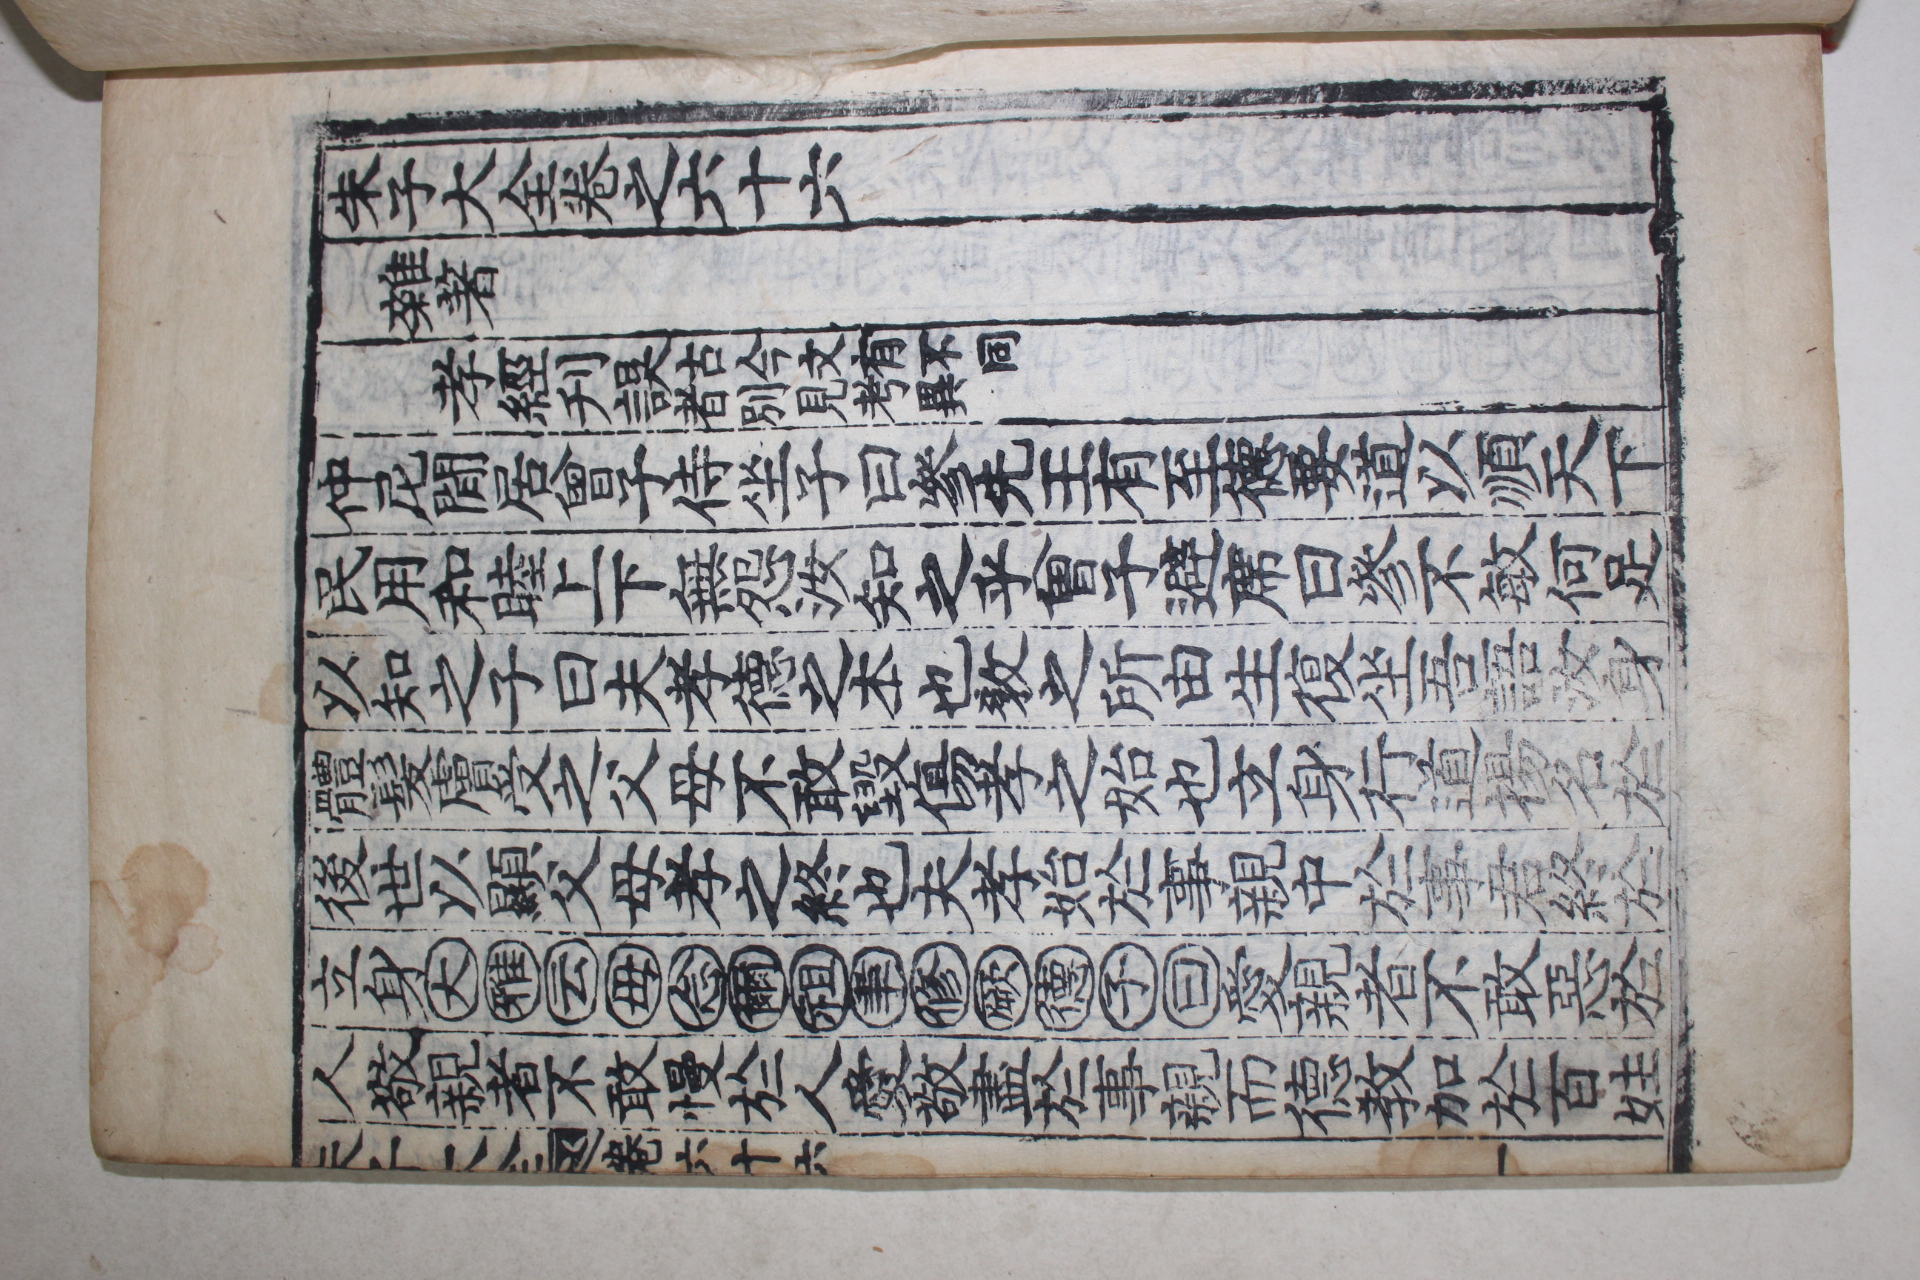 朱子大全卷之六十六
雜著
孝經刊誤
古今文有不同
者別見考異
仲尼閒居曾子侍坐子曰參先王有至德要道以順天下
民用和睦上下無怨汝知之乎曾子避席曰參不敏何足
以知之子曰夫孝德之本也敎之所由生復坐吾語汝身
體髮膚受之父母不敢毀傷孝之始也立身行道揚名於
後世以顯父母孝之終也夫孝始於事親中於事君終於
立身大雅云毋念爾祖聿修厥德子曰愛親者不敢惡於
人敬親者不敢慢於人愛敬盡於事親而德教加於百姓
朱子大全 卷六十六 一